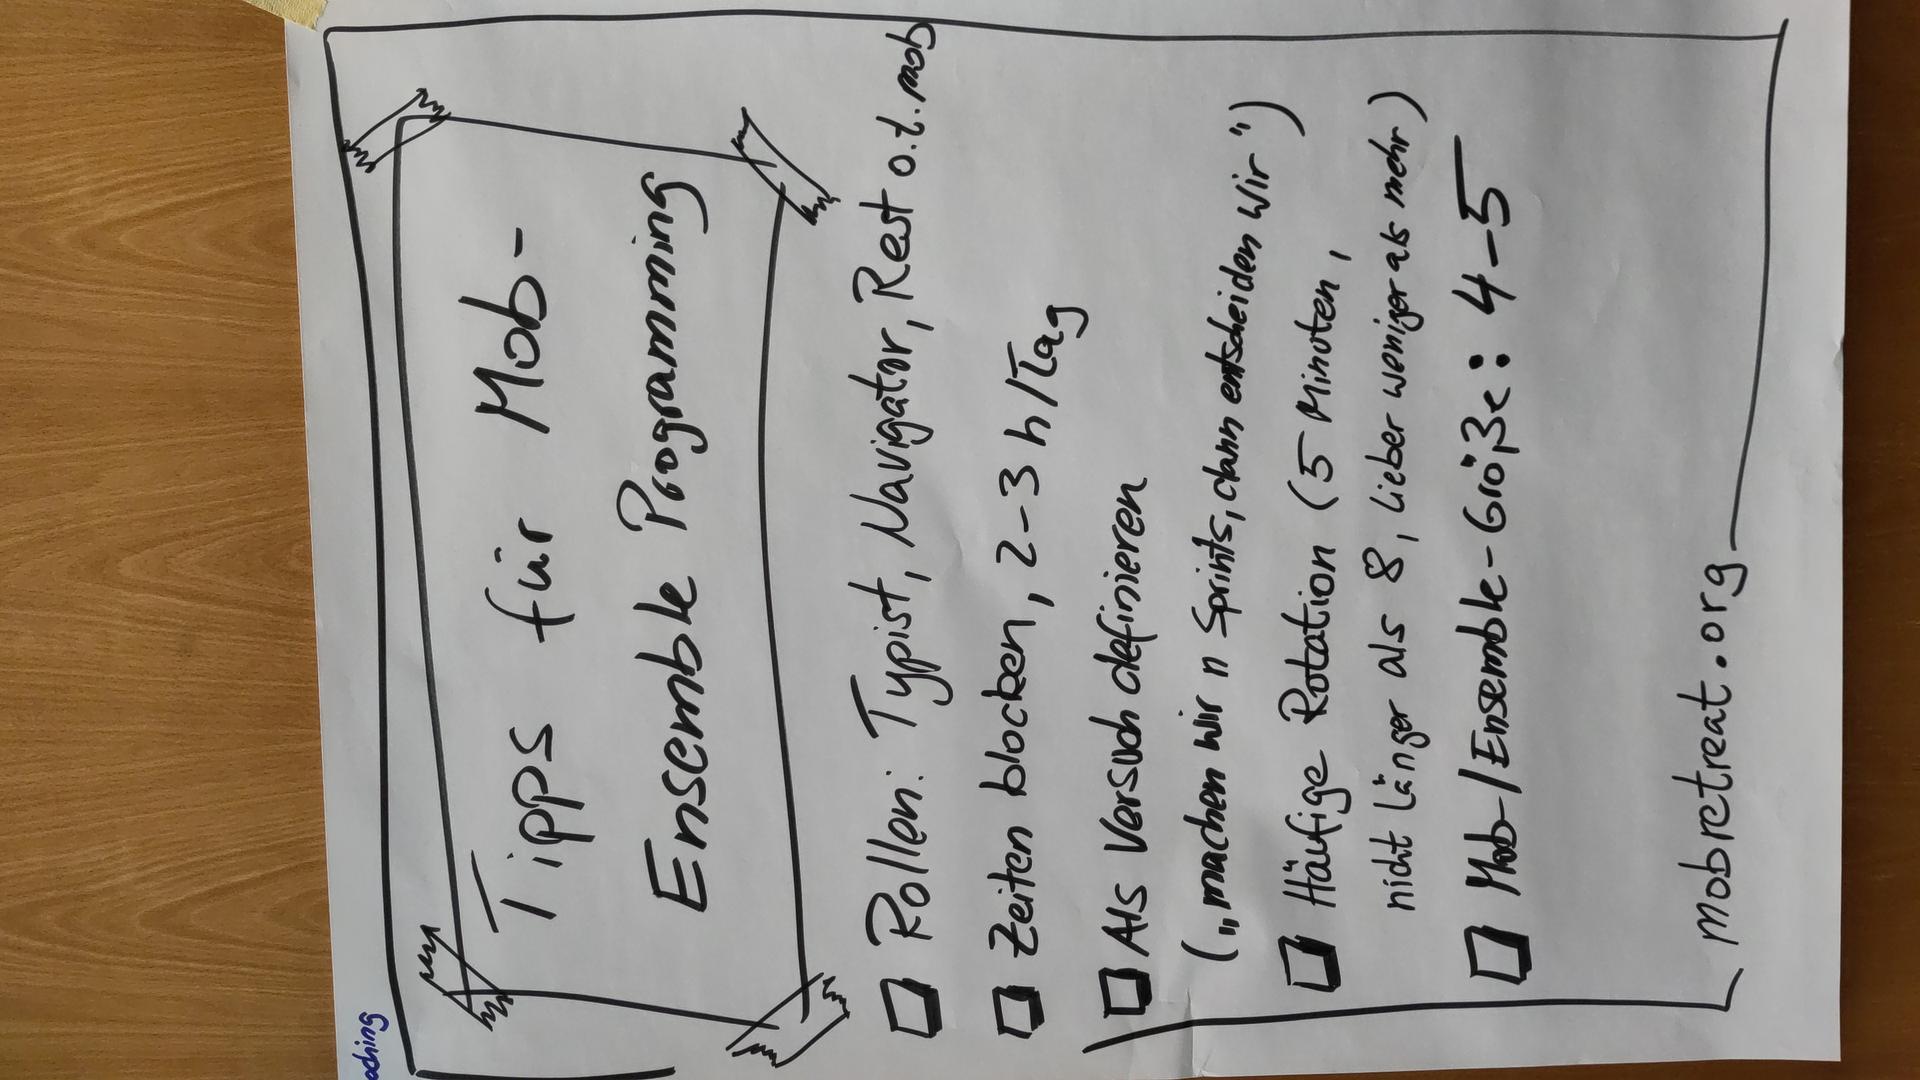 aching
Tipps für Mob-
Ensemble Programming
Rollen: Typist, Navigator, Rest o.t. mob
Zeiten blocken, 2-3 h/Tag
Als Versuch definieren
(„machen wir n Sprints, dann entscheiden wir“)
Häufige Rotation (5 Minuten,
nicht länger als 8, lieber weniger als mehr)
Mob-/Ensemble-Größe: 4-5
mobretreat.org